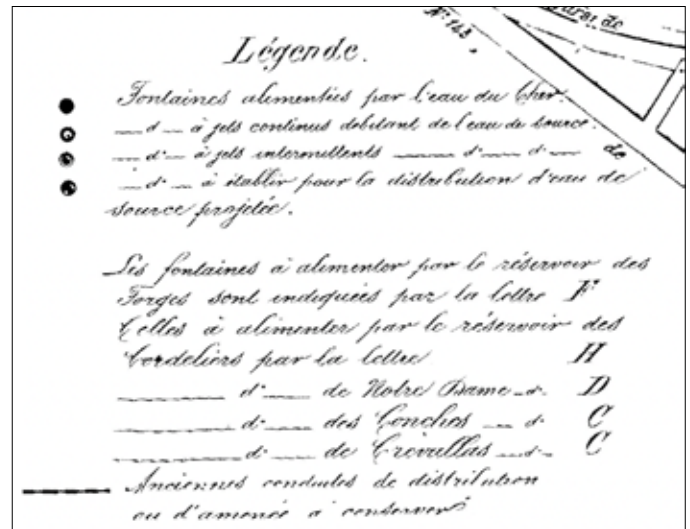 N.º 143.
de
Légende.
Fontaines alimentées par l'eau du Cher.
— d — à jets continus débitant de l'eau de source.
— d° — à jets intermittents — d° — d° — de
— d° — à établir pour la distribution d'eau de
source projetée.
Les fontaines à alimenter par le réservoir des
Forges sont indiquées par la lettre F
Celles à alimenter par le réservoir des
Cordeliers par la lettre H
— d° — de Notre Dame — d° D
— d° — des Conches — d° C
— d° — de Crevallas — d° — C
Anciennes conduites de distribution
ou d'amenée à conserver